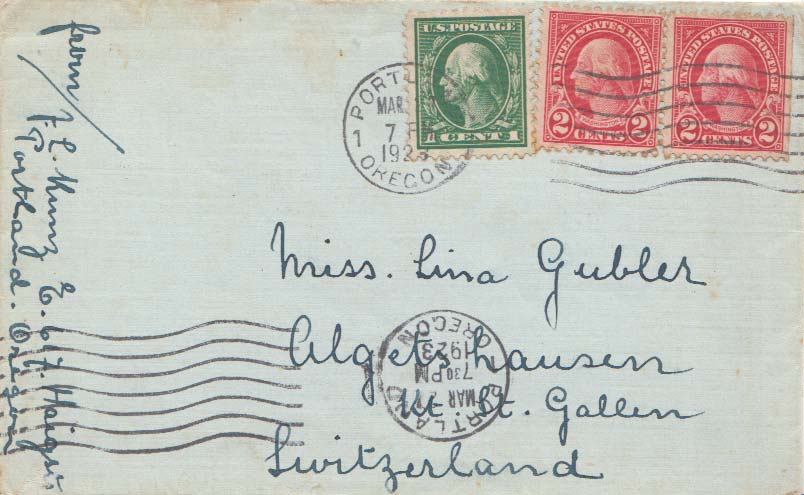 from/
F.L. Kunz E. 647. Haig St.
Portland. Oregon
U.S. POSTAGE
1 CENT 1
UNITED STATES POSTAGE
WASHINGTON
2 CENTS 2
UNITED STATES POSTAGE
WASHINGTON
2 CENTS 2
PORTL
MAR
7 PM
1923
OREGON
1
Miss. Lina Gubler
Algetshausen
Kt. St. Gallen
Switzerland
PORTLAND
MAR 7
730 PM
1923
OREGON